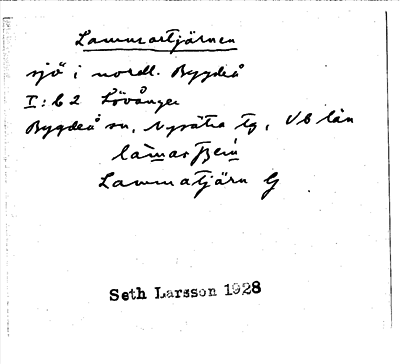 Lammartjärnen
sjö i nordl. Bygdeå
I:62 Lövånger
Bygdeå sn, Nysätra tg, Vb län
Lammatjärn G
Seth Larsson 1928